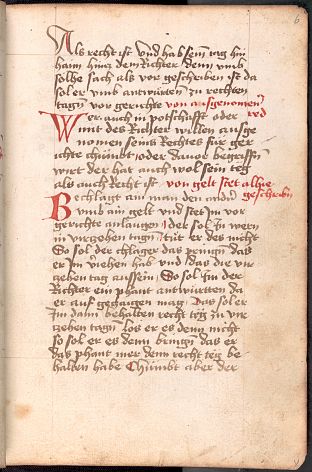 6
Als recht ist Und hab sein tag hin
hann hincz dem Richter denn umb
solhe sach als vor geschriben ist da
sol er umb antwurtten zu rechten
tagn vor gerichte von ausgenomen
red
Wer auch in potschafft oder
mit des Richter willen ausge
nomen seins Rechtes für ger
ichte chümbt oder davor begriffn
wirt der hat auch wol sein teg
als auch Recht ist von gelt stet alhie
geschribn
Bechlagt ain man den andern
umb ain gelt und stet Im vor
gerichte anlaugen der sol In wern
in virzehen tagn tüt er des nicht
So sol der chlager das pringn das
er In und das die vir
zehen tag aussein So sol Im der
Richter ein phant antwurtten da
er auf gegangen mag Das sol er
Im dann behalten recht teg zu vir
zehen tagn Los er es denn nicht
so sol er es denn bringn das er
das phant mer denn recht teg be
halten habe Chümbt aber der